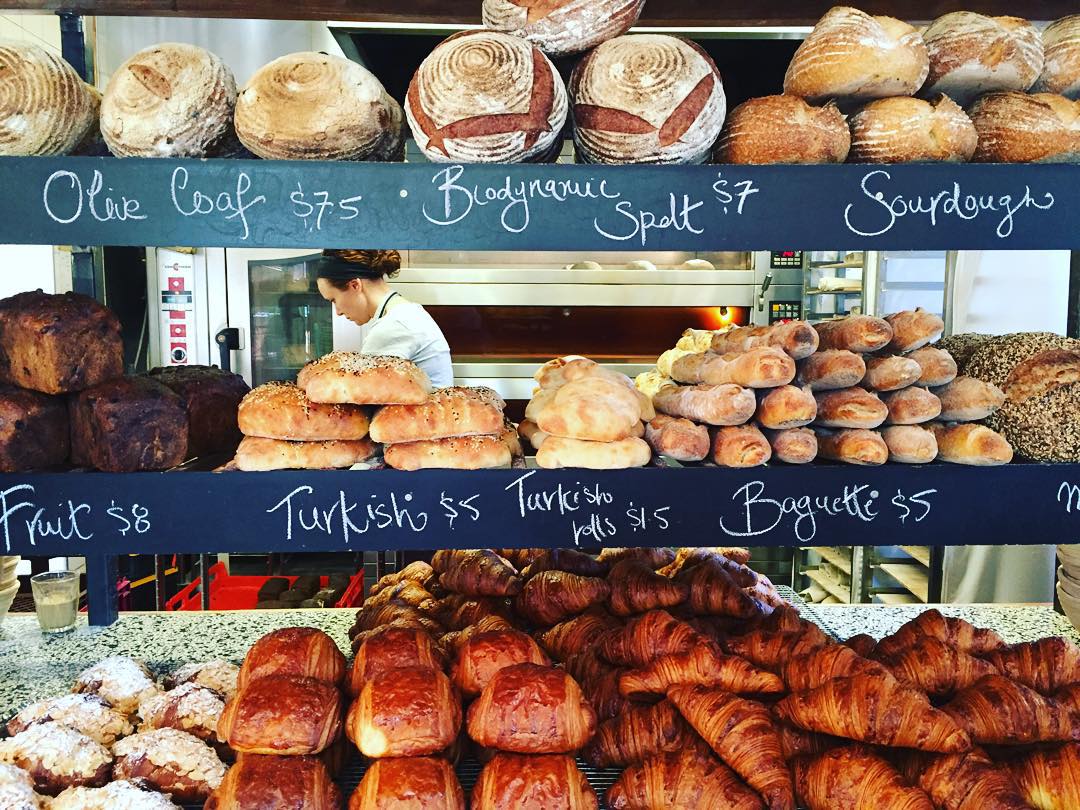 Olive Loaf $7.5
Biodynamic Spelt $7
Sourdough
Fruit $8
Turkish $5
Turkish rolls $1.5
Baguette $5